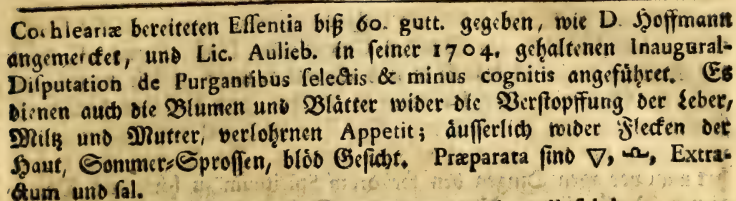 Cochleariæ bereiteten Essentia biß 60. gutt. gegeben, wie D. Hoffmann
angemercket, und Lic. Aulieb. in seiner 1704. gehaltenen Inaugural-
Disputation de Purgantibus selectis & minus cognitis angeführet. Es
dienen auch die Blumen und Blätter wider die Verstopffung der Leber,
Miltz und Mutter, verlohrnen Appetit; äusserlich wider Flecken der
Haut, Sommer-Sprossen, blöd Gesicht. Præparata sind 🜄, ♎, Extra-
ctum und sal.